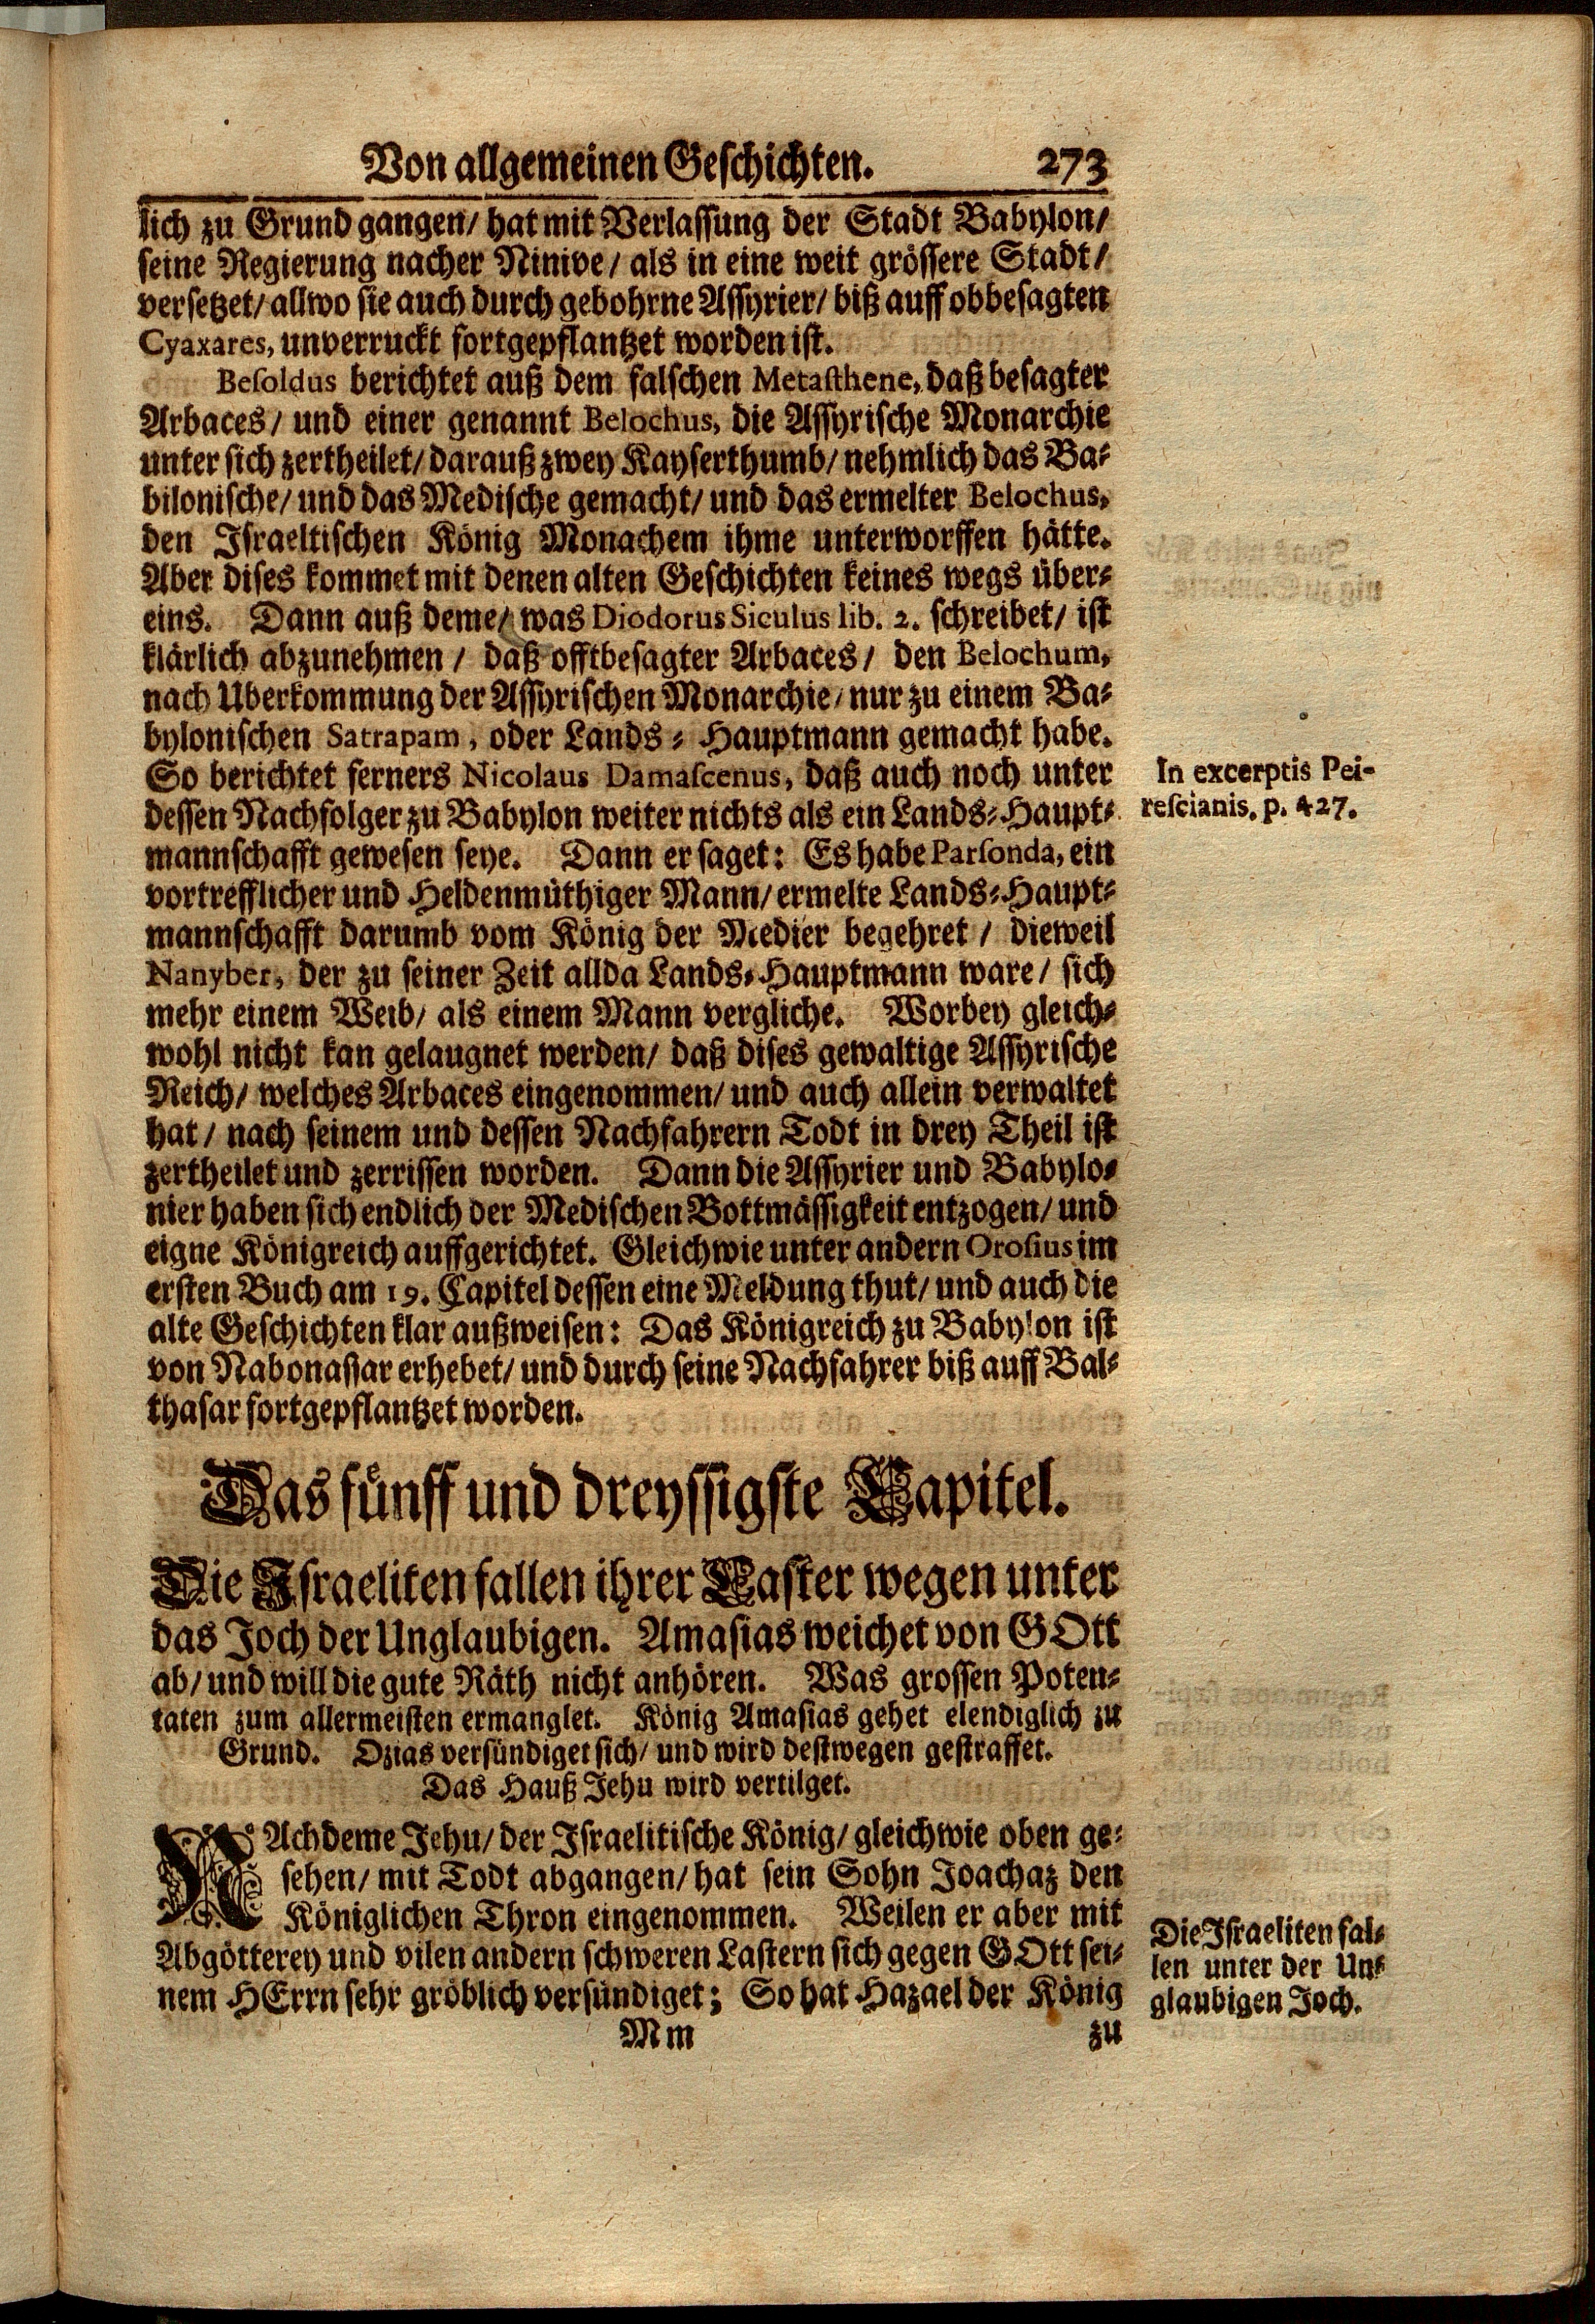 Von allgemeinen Geschichten. 273
lich zu Grund gangen/ hat mit Verlassung der Stadt Babylon/
seine Regierung nacher Ninive/ als in eine weit grössere Stadt/
versetzet/ allwo sie auch durch gebohrne Assyrier/ biß auff obbesagten
Cyaxares, unverruckt fortgepflantzet worden ist.
Besoldus berichtet auß dem falschen Metasthene, daß besagter
Arbaces/ und einer genannt Belochus, die Assyrische Monarchie
unter sich zertheilet/ darauß zwey Kayserthumb/ nehmlich das Ba-
bilonische/ und das Medische gemacht/ und das ermelter Belochus,
den Israeltischen König Monachem ihme unterworffen hätte.
Aber dises kommet mit denen alten Geschichten keines wegs über-
eins. Dann auß deme/ was Diodorus Siculus lib. 2. schreibet/ ist
klärlich abzunehmen/ daß offtbesagter Arbaces/ den Belochum,
nach Uberkommung der Assyrischen Monarchie/ nur zu einem Ba-
bylonischen Satrapam, oder Lands-Hauptmann gemacht habe.
So berichtet ferners Nicolaus Damascenus, daß auch noch unter
dessen Nachfolger zu Babylon weiter nichts als ein Lands-Haupt-
mannschafft gewesen seye. Dann er saget: Es habe Parsonda, ein
vortrefflicher und Heldenmüthiger Mann/ ermelte Lands-Haupt-
mannschafft darumb vom König der Medier begehret/ dieweil
Nanyber, der zu seiner Zeit allda Lands-Hauptmann ware/ sich
mehr einem Weib/ als einem Mann vergliche. Worbey gleich-
wohl nicht kan gelaugnet werden/ daß dises gewaltige Assyrische
Reich/ welches Arbaces eingenommen/ und auch allein verwaltet
hat/ nach seinem und dessen Nachfahrern Todt in drey Theil ist
zertheilet und zerrissen worden. Dann die Assyrier und Babylo-
nier haben sich endlich der Medischen Bottmässigkeit entzogen/ und
eigne Königreich auffgerichtet. Gleichwie unter andern Orosius im
ersten Buch am 19. Capitel dessen eine Meldung thut/ und auch die
alte Geschichten klar außweisen: Das Königreich zu Babylon ist
von Nabonassar erhebet/ und durch seine Nachfahrer biß auff Bal-
thasar fortgepflantzet worden.
In excerptis Pei-
rescianis. p. 427.
Das fünff und dreyssigste Capitel.
Die Israeliten fallen ihrer Laster wegen unter
das Joch der Unglaubigen. Amasias weichet von GOtt
ab/ und will die gute Räth nicht anhören. Was grossen Poten-
taten zum allermeisten ermanglet. König Amasias gehet elendiglich zu
Grund. Ozias versündiget sich/ und wird destwegen gestraffet.
Das Hauß Jehu wird vertilget.
NAchdeme Jehu/ der Israelitische König/ gleichwie oben ge-
sehen/ mit Todt abgangen/ hat sein Sohn Joachaz den
Königlichen Thron eingenommen. Weilen er aber mit
Abgötterey und vilen andern schweren Lastern sich gegen GOtt sei-
nem HErrn sehr gröblich versündiget; So hat Hazael der König
Die Israeliten fal-
len unter der Un-
glaubigen Joch.
Mm zu